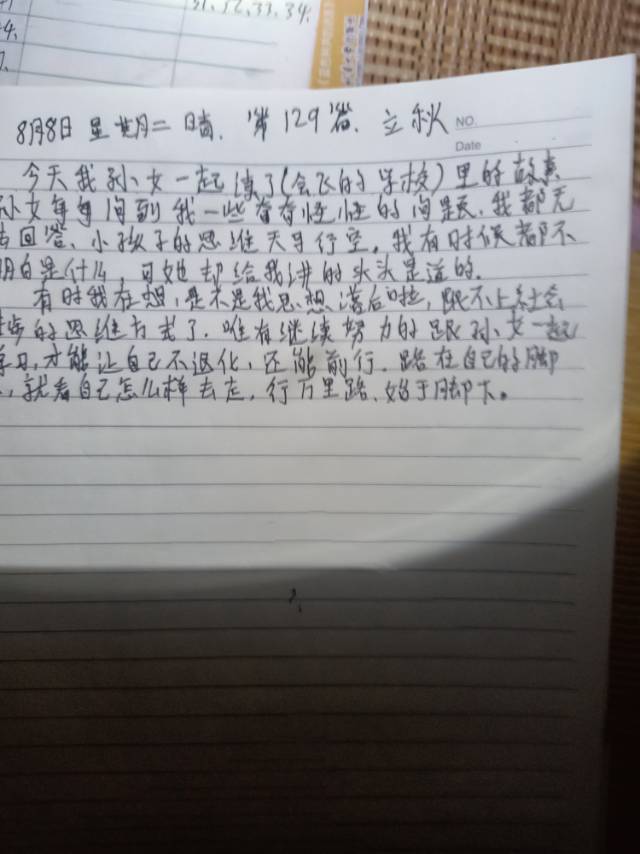 31、32、33、34、
8月8日 星期二 晴. 第129篇. 立秋
NO.
Date
今天我孙女一起读了(会飞的学校)里的故事
孙女每每问到我一些奇奇怪怪的问题、我都无
法回答、小孩子的思维天马行空, 我有时候都不
明白是什么, 可她却给我讲的头头是道的.
有时我在想, 是不是我思想落后啦, 跟不上社会
步的思维方式了. 唯有继续努力的跟孙女一起
学习, 才能让自己不退化, 还能前行. 路在自己的脚
, 就看自己怎么样去走, 行万里路、始于脚下。